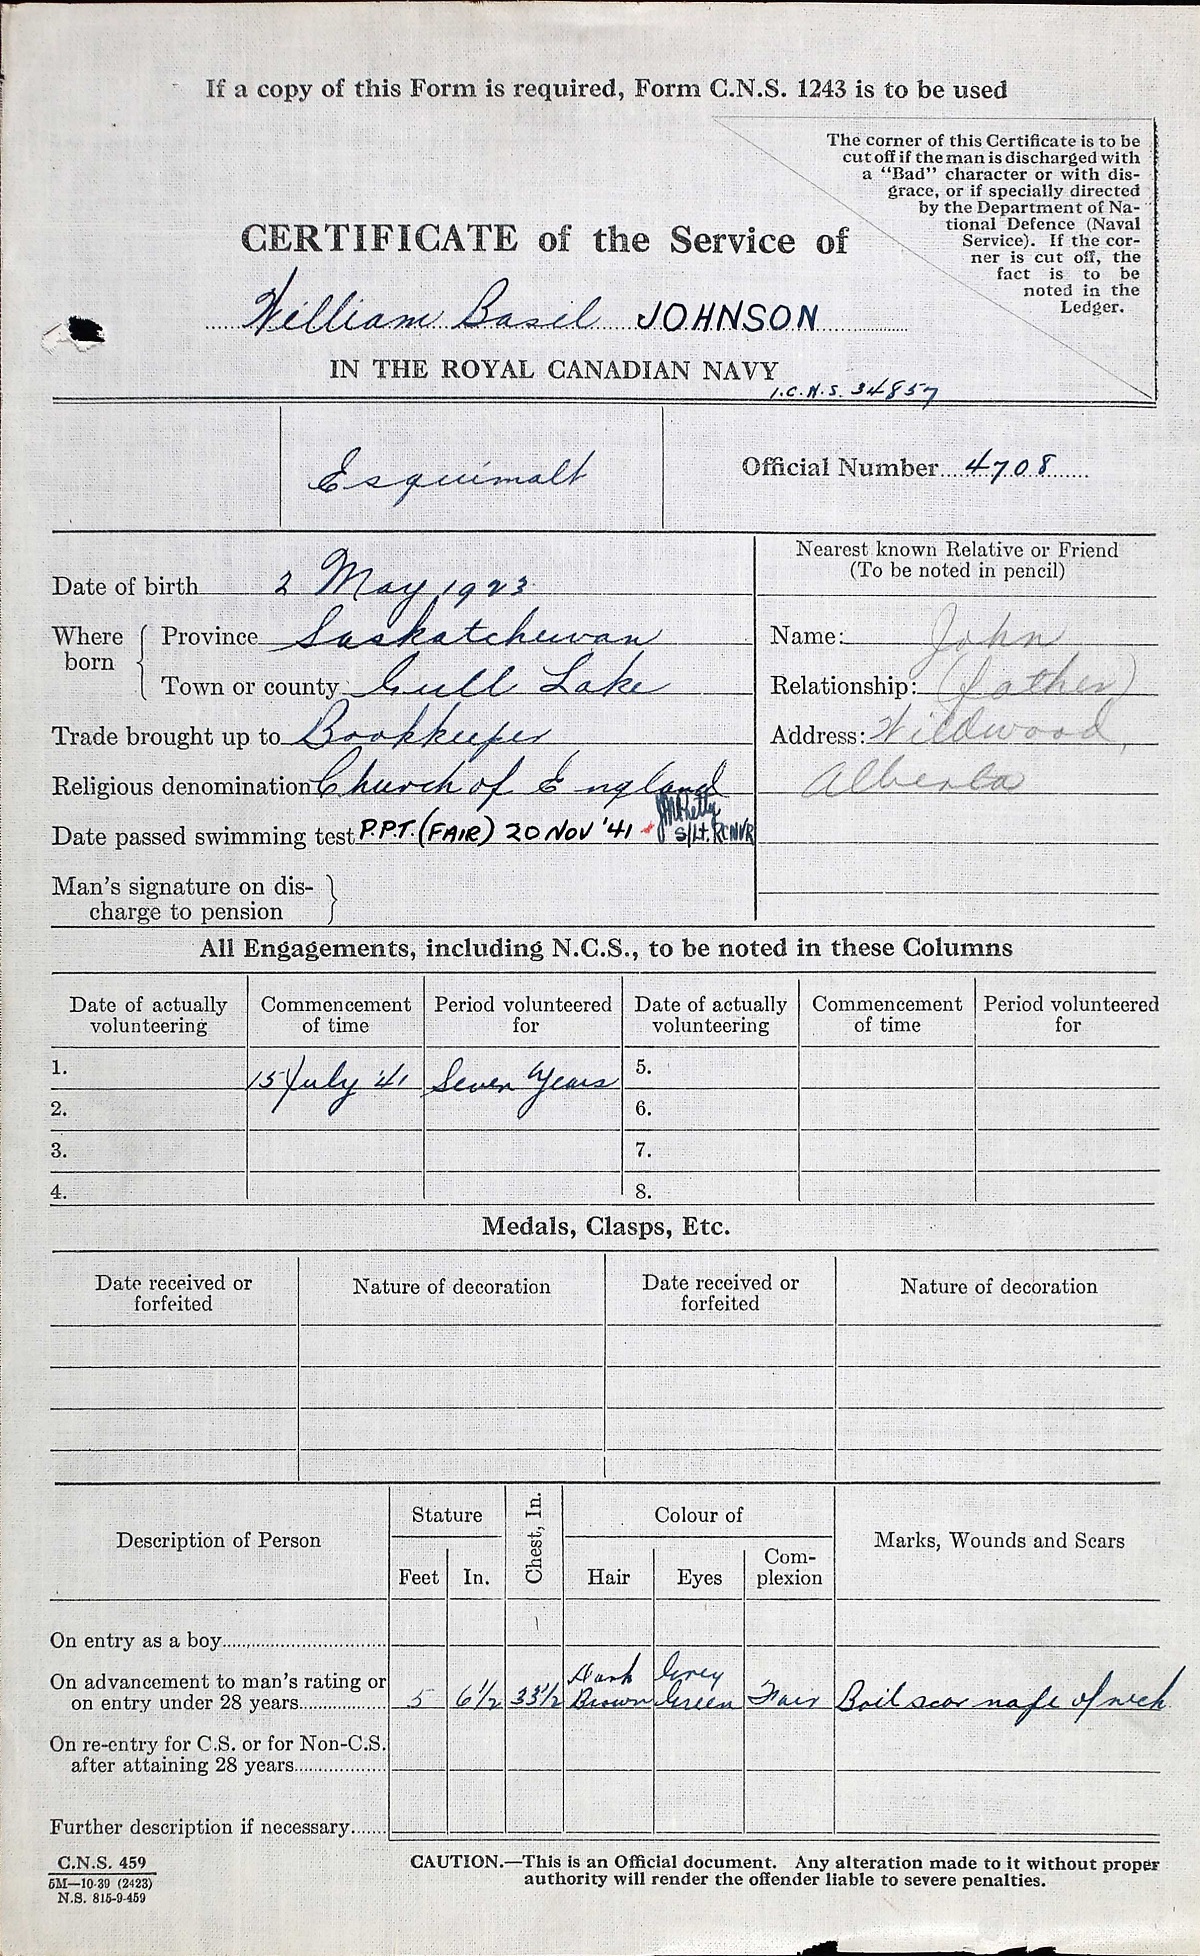 If a copy of this Form is required, Form C.N.S. 1243 is to be used
The corner of this Certificate is to be
cut off if the man is discharged with
a “Bad” character or with dis-
grace, or if specially directed
by the Department of Na-
tional Defence (Naval
Service). If the cor-
ner is cut off, the
fact is to be
noted in the
Ledger.
CERTIFICATE of the Service of
William Basil JOHNSON
IN THE ROYAL CANADIAN NAVY
I.C.N.S. 34857
Esquimalt
Official Number 4708
Date of birth 2 May 1923
Where born
Province Saskatchewan
Town or county Gull Lake
Trade brought up to Bookkeeper
Religious denomination Church of England
Date passed swimming test P.P.T. (FAIR) 20 NOV '41
S/Lt. RCNVR
Man's signature on dis-
charge to pension
Nearest known Relative or Friend
(To be noted in pencil)
Name: John
Relationship: (father)
Address: Wildwood,
Alberta
All Engagements, including N.C.S., to be noted in these Columns
Date of actually volunteering Commencement of time Period volunteered for Date of actually volunteering Commencement of time Period volunteered for
1. 15 July '41 Seven Years 5.
2. 6.
3. 7.
4. 8.
Medals, Clasps, Etc.
Date received or forfeited Nature of decoration Date received or forfeited Nature of decoration
Description of Person Stature Chest, In. Colour of Marks, Wounds and Scars
Feet In. Hair Eyes Com-plexion
On entry as a boy
On advancement to man's rating or
on entry under 28 years 5 6½ 33½ Dark Brown Grey Green Fair Boil scar nape of neck
On re-entry for C.S. or for Non-C.S.
after attaining 28 years
Further description if necessary
C.N.S. 459
5M—10-39 (2423)
N.S. 815-9-459
CAUTION.—This is an Official document. Any alteration made to it without proper
authority will render the offender liable to severe penalties.